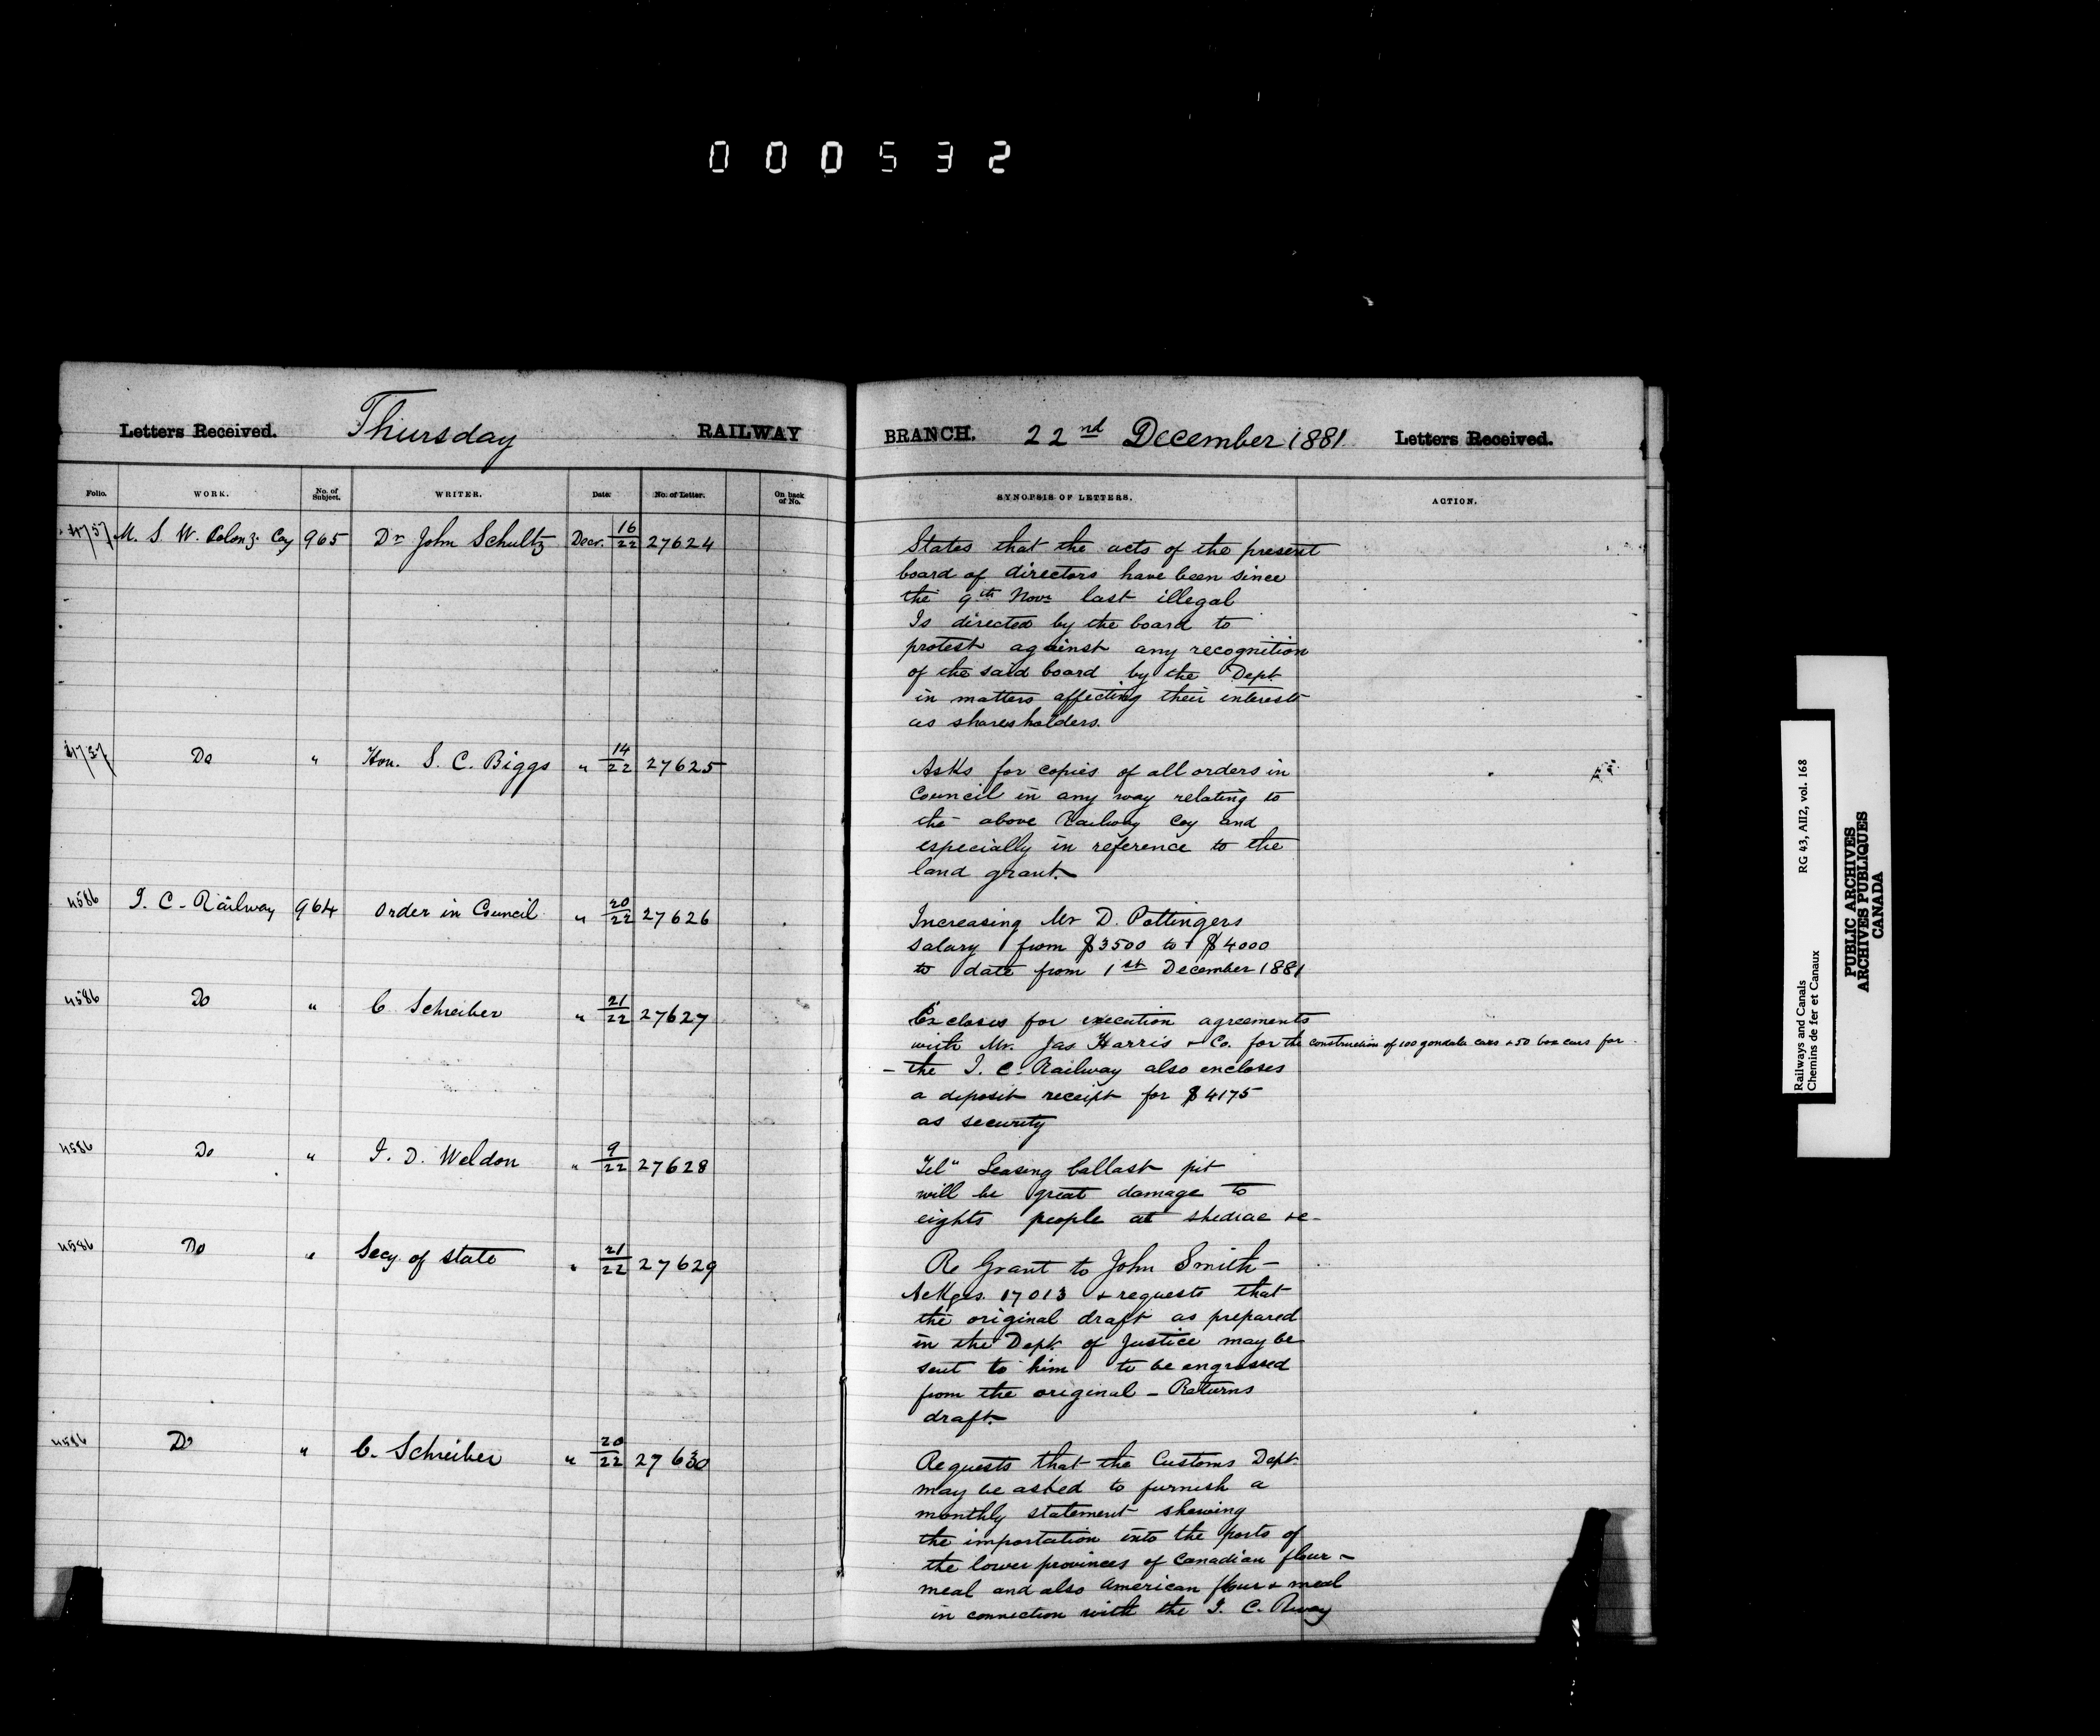 000532
Letters Received. Thursday RAILWAY
BRANCH. 22nd December 1881 Letters Received.
Folio. WORK. No. of Subject. WRITER. Date. No. of Letter. On back of No.
SYNOPSIS OF LETTERS. ACTION.
M. S. W. Colonz. Coy 965 Dr John Schultz Decr. 16/22 27624
States that the acts of the present
board of directors have been since
the 9th Novr last illegal
Is directed by the board to
protest against any recognition
of the said board by the Dept
in matters affecting their interests
as shareholders.
Do " Hon. S. C. Biggs " 14/22 27625
Asks for copies of all orders in
Council in any way relating to
the above Railway Coy and
especially in reference to the
land grant.
4586 I. C. Railway 964 Order in Council " 20/22 27626
Increasing Mr D. Pottingers
salary from $3500 to $4000
to date from 1st December 1881
4586 Do " C Schreiber " 21/22 27627
Encloses for execution agreements
with Mr. Jas Harris & Co. for the construction of 100 gondola cars & 50 box cars for
- the I. C. Railway also encloses
a deposit receipt for $4175
as security
4586 Do " I. D. Weldon " 9/22 27628
Tel" Leasing ballast pit
will be great damage to
eights people at shediac &c-
4586 Do " Secy. of state " 21/22 27629
Re Grant to John Smith -
Ackges. 17013 & requests that
the original draft as prepared
in the Dept. of Justice may be
sent to him to be engrossed
from the original - Returns
draft.
4586 Do " C. Schreiber " 20/22 27630
Requests that the Customs Dept.
may be asked to furnish a
monthly statement shewing
the importation into the ports of
the lower provinces of Canadian flour -
meal and also American flour & meal
in connection with the I. C. Rway
Railways and Canals RG 43, AII2, vol. 168
Chemins de fer et Canaux
PUBLIC ARCHIVES
ARCHIVES PUBLIQUES
CANADA